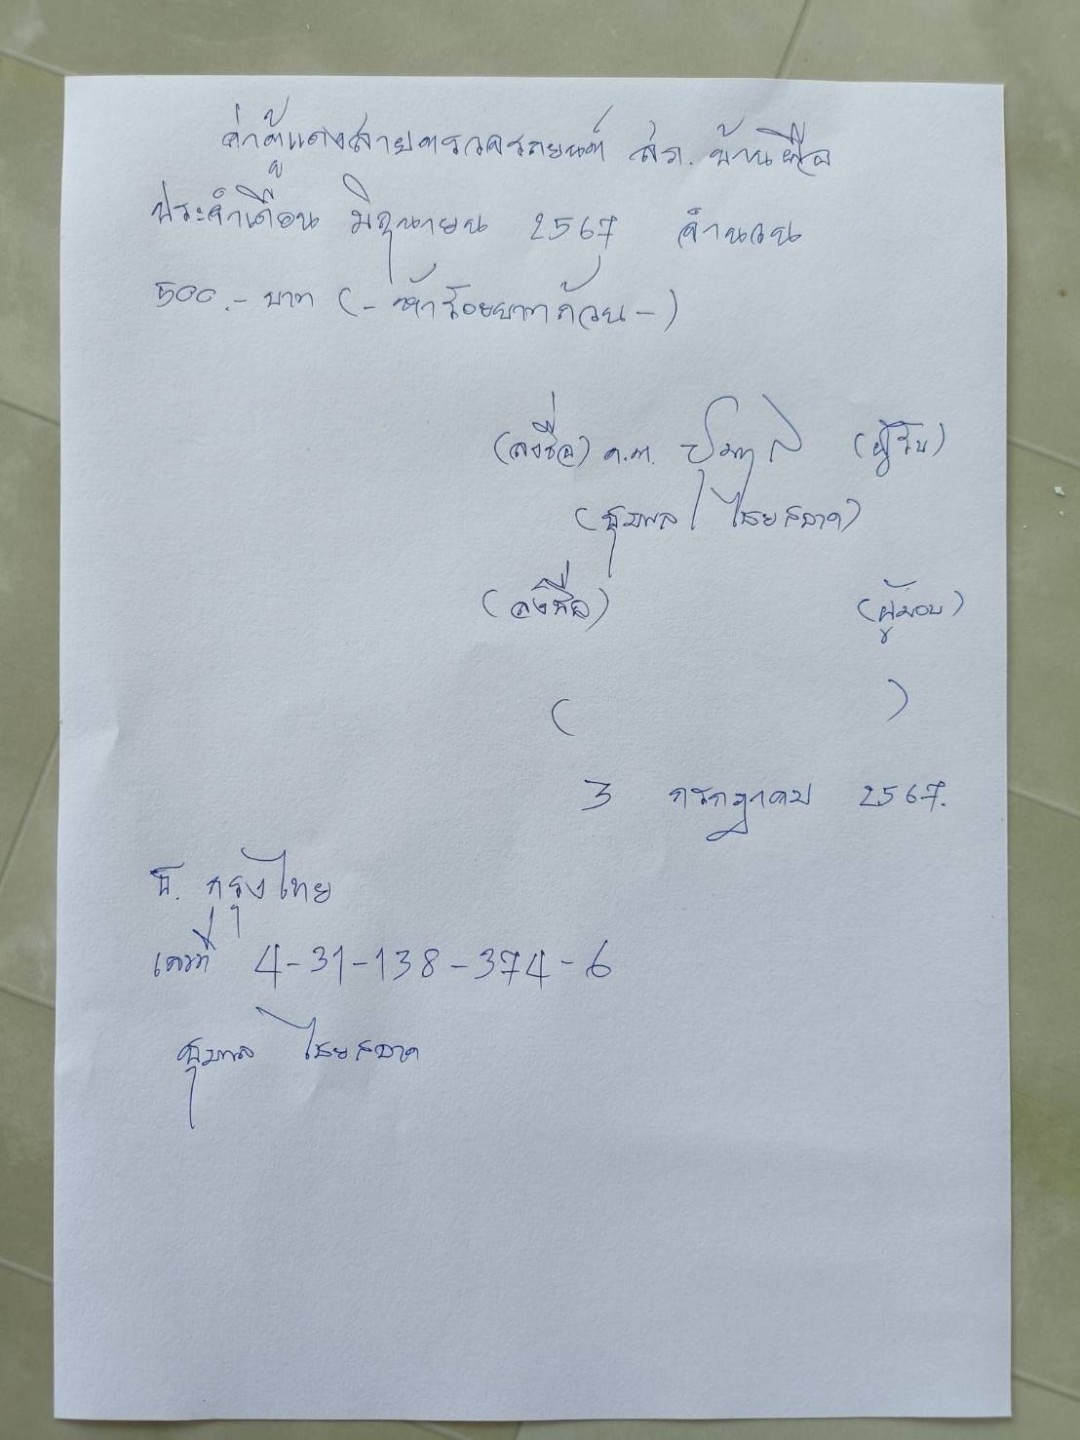 ค่าตู้แดงสายตรวจรถยนต์ สภ. บ้านผือ
ประจำเดือน มิถุนายน 2567 จำนวน
500.- บาท (- ห้าร้อยบาทถ้วน -)
(ลงชื่อ) ด.ต. (ผู้รับ)
(ชุมพล ไชยสลาด)
(ลงชื่อ) (ผู้มอบ)
( )
3 กรกฎาคม 2567.
ธ. กรุงไทย
เลขที่ 4-31-138-374-6
ชุมพล ไชยสลาด